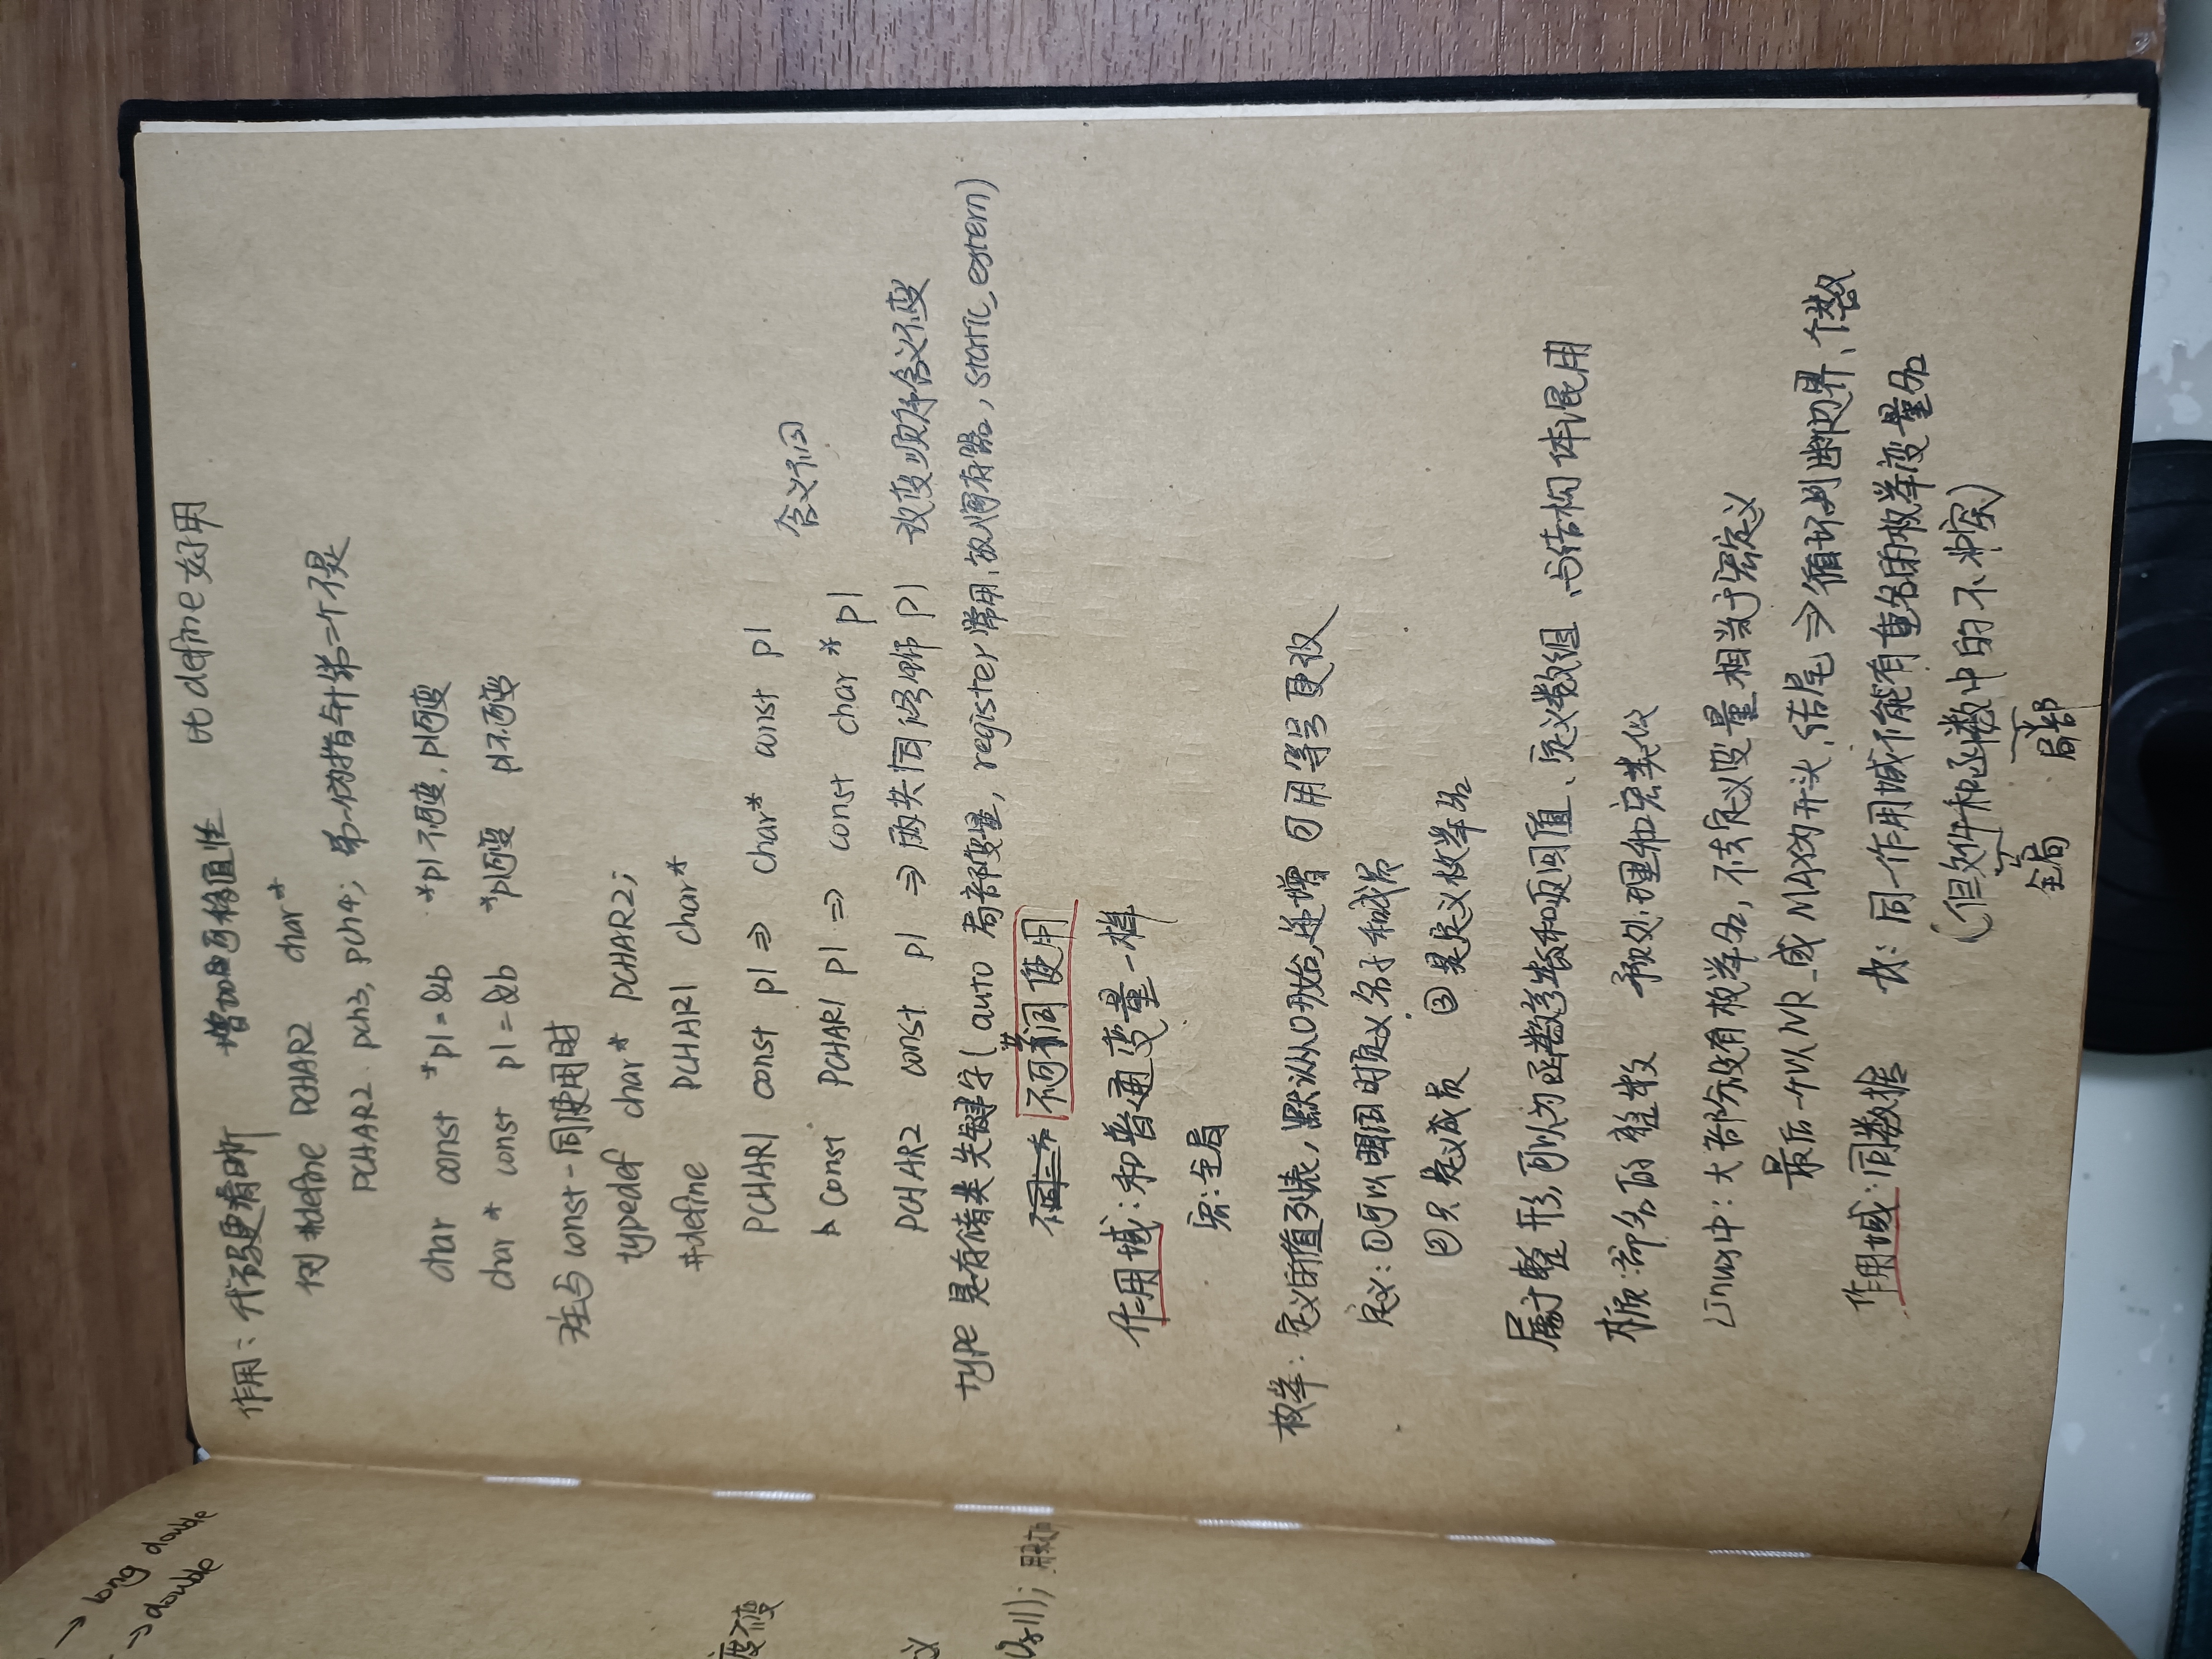 → long double
→ double
度不变
义
用来打印
作用：代码更清晰 增加可移值性 比define好用
例 #define PCHAR2 char*
PCHAR2 pch3, pch4; 第一个为指针第二个不是
char const *p1=&b *p1不可变,p1可变
char* const p1=&b *p1可变 p1不可变
注与const一同使用时
typedef char* PCHAR2;
#define PCHAR1 char*
PCHAR1 const p1 ⇒ char* const p1
含义不同
const PCHAR1 p1 ⇒ const char* p1
PCHAR2 const p1 ⇒ 两共同修饰p1 改变顺序含义不变
type 是存储类关键字( auto 局部变量, register 常用,放入寄存器, static, extern)
不可共同使用
作用域:和普通变量一样
宏:全局
枚举: 定义的值列表,默认从0开始,递增 可用等号更改
定义:①可以同时定义名子和成员
②只定义成员 ③是定义枚举名
属于整形,可以为函数参数和返回值、定义数组、与结构体混用
本质:命名的整数 预处理和宏类似
Linux中: 大部分没有枚举名, 不去定义变量 相当于宏定义
最后一个以NR_或MAX为开头,结尾⇒循环判断边界、个数
作用域:同数据 故: 同一作用域不能有重名的枚举变量名
(但文件和函数中的不冲突)
全局 局部